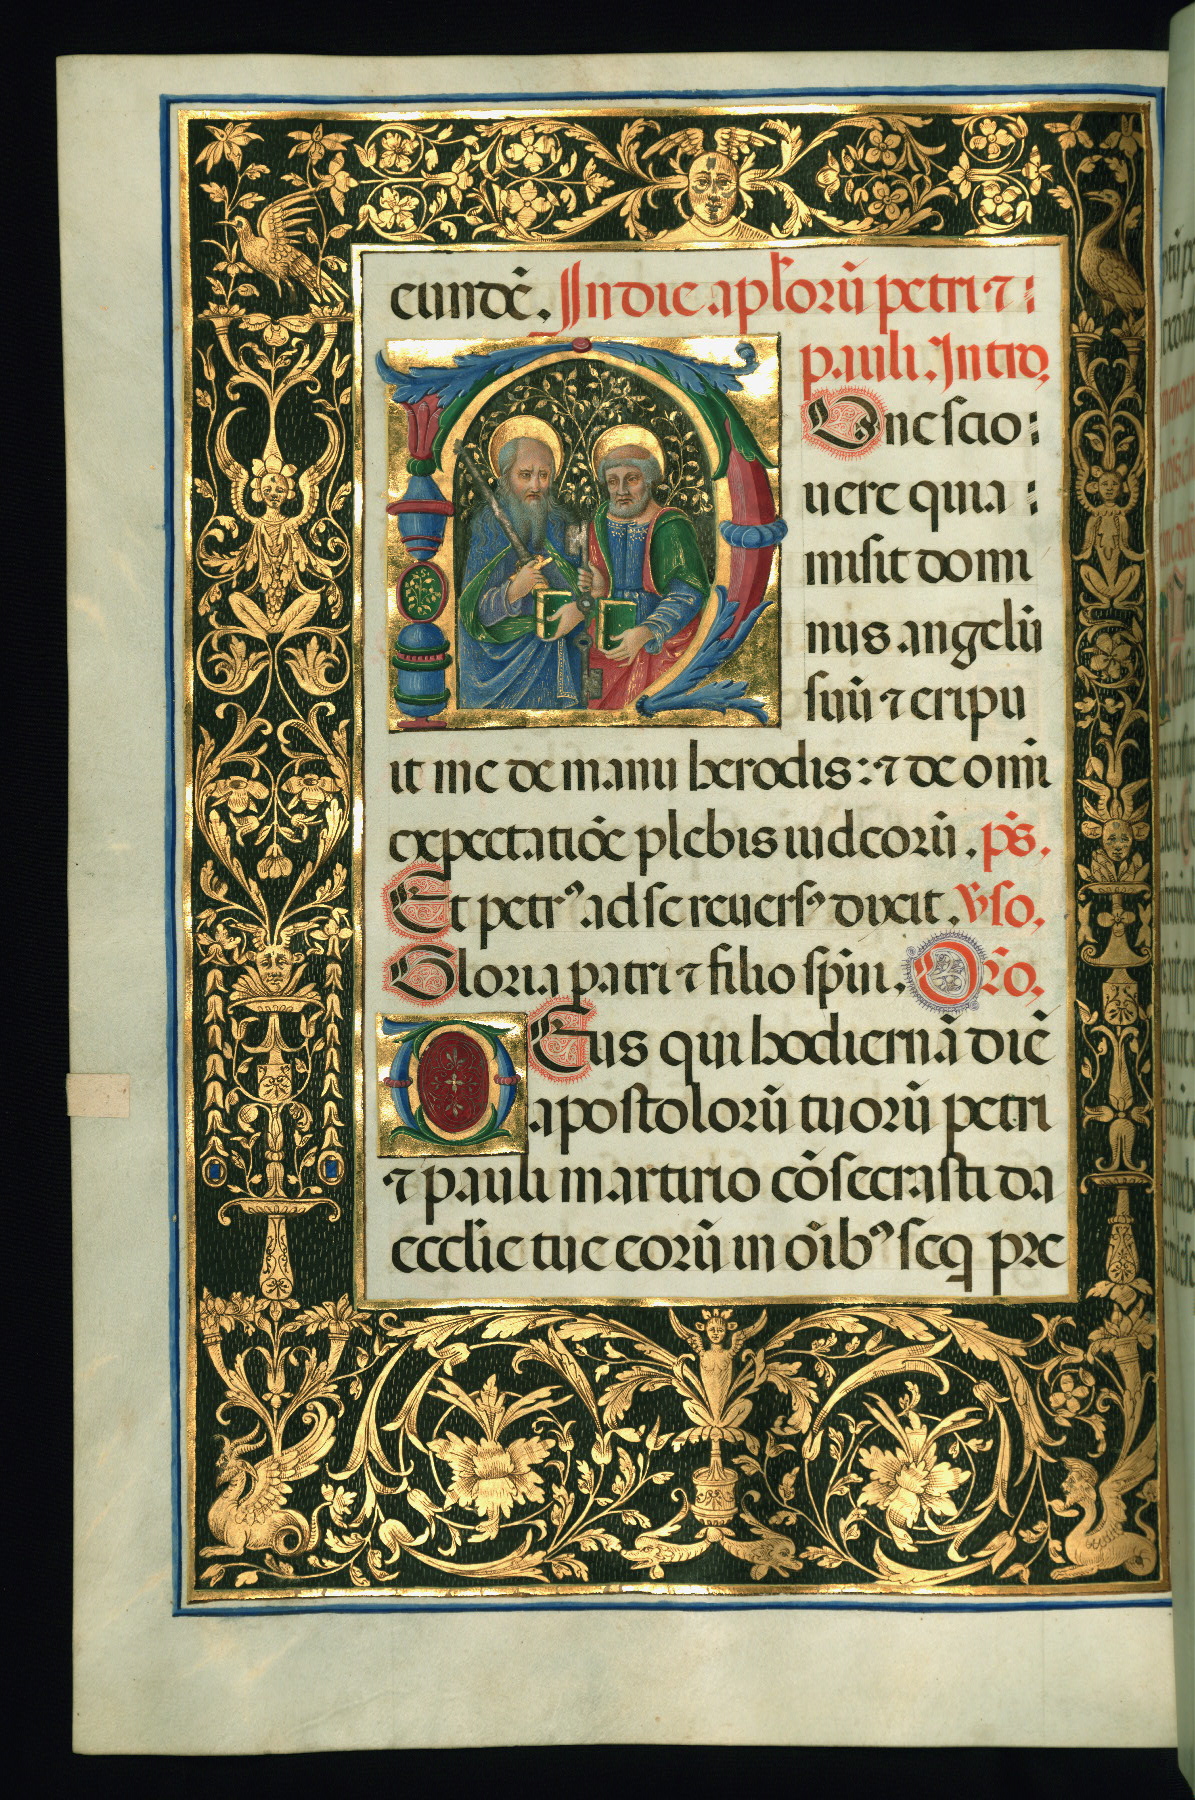 eundē. In die aplōrū petri ⁊
pauli. Intro.
Unc scio
uere quia
misit domi
nus angelū
suū ⁊ eripu
it me de manu herodis: ⁊ de omī
expectatiōe plebis iudeorū. ps̄.
Et petr⁹ ad se reuers⁹ dixit. V̄. so.
Gloria patri ⁊ filio sp̄iu. Or̄o.
Eus qui hodiernā diē
apostolorū tuorū petri
⁊ pauli martirio cōsecrasti da
ecclīe tue eorū in oīb⁹ seq̄ pre